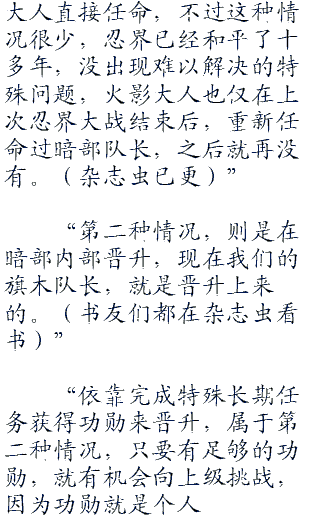 大人直接任命，不过这种情
况很少，忍界已经和平了十
多年，没出现难以解决的特
殊问题，火影大人也仅在上
次忍界大战结束后，重新任
命过暗部队长，之后就再没
有。（杂志虫已更）”
“第二种情况，则是在
暗部内部晋升，现在我们的
旗木队长，就是晋升上来
的。（书友们都在杂志虫看
书）”
“依靠完成特殊长期任
务获得功勋来晋升，属于第
二种情况，只要有足够的功
勋，就有机会向上级挑战，
因为功勋就是个人